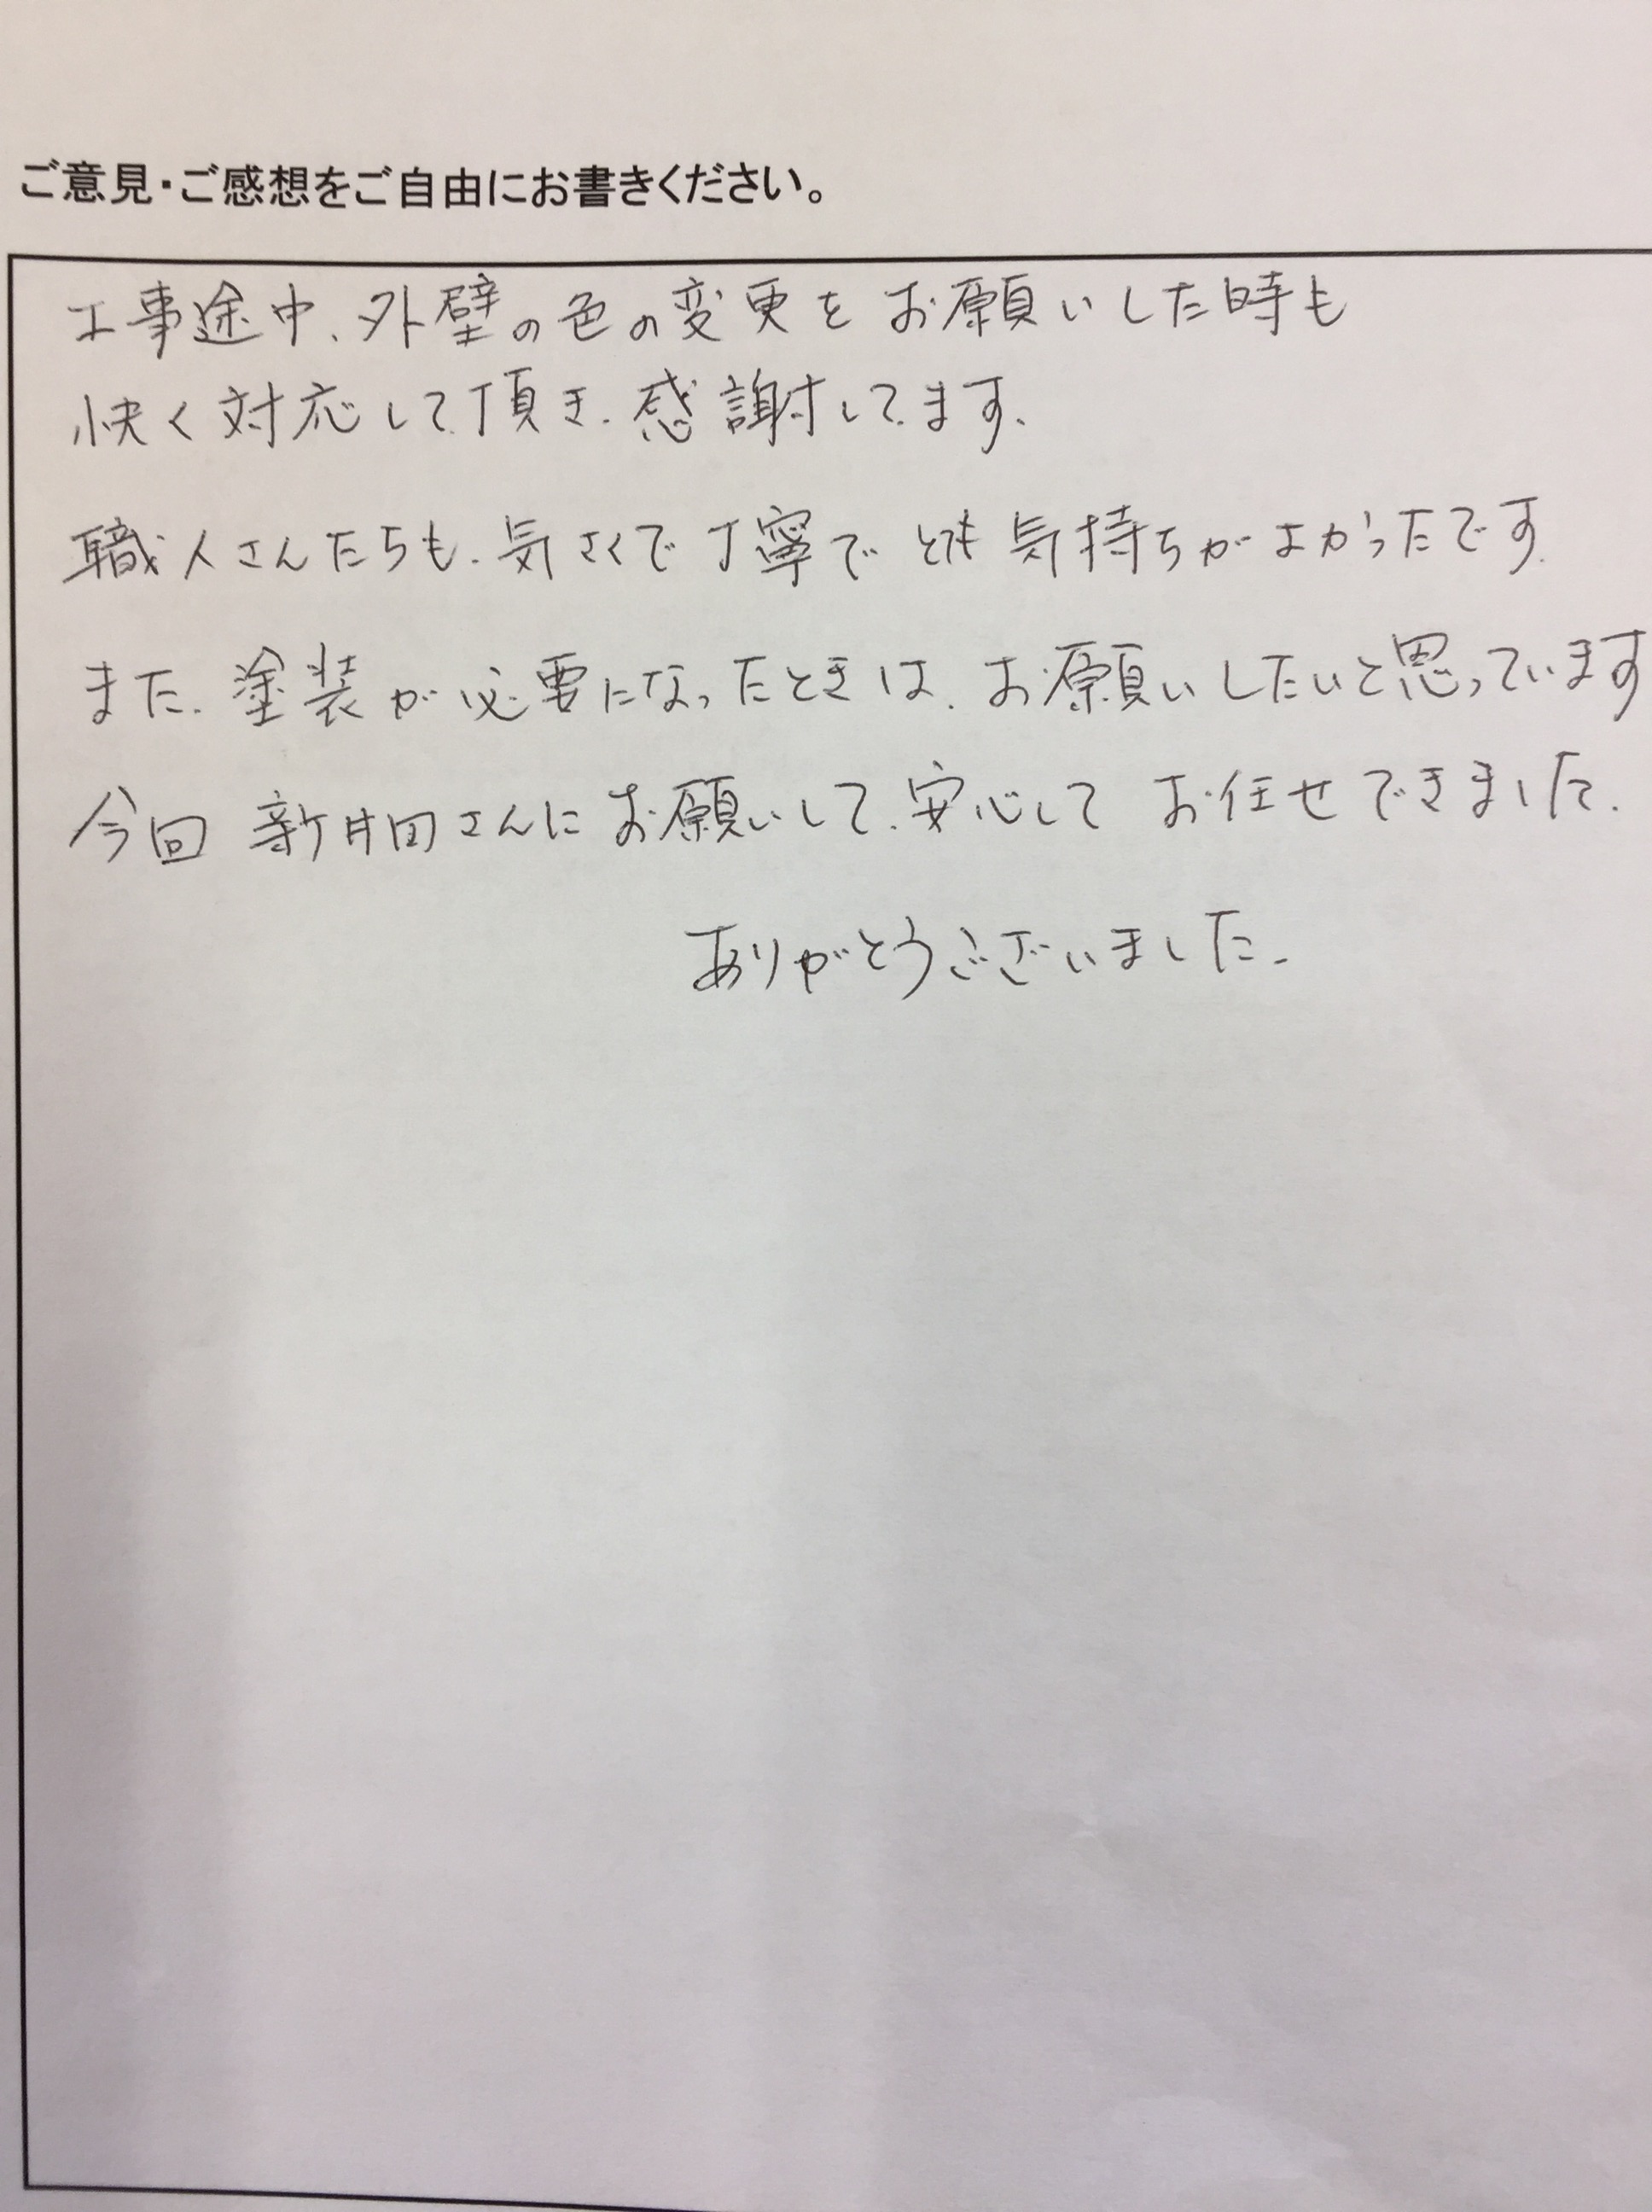 ご意見・ご感想をご自由にお書きください。
工事途中、外壁の色の変更をお願いした時も
快く対応して頂き、感謝してます。
職人さんたちも、気さくで丁寧でとても気持ちがよかったです。
また、塗装が必要になったときは、お願いしたいと思っています
今回 新井田さんにお願いして、安心してお任せできました。
ありがとうございました。